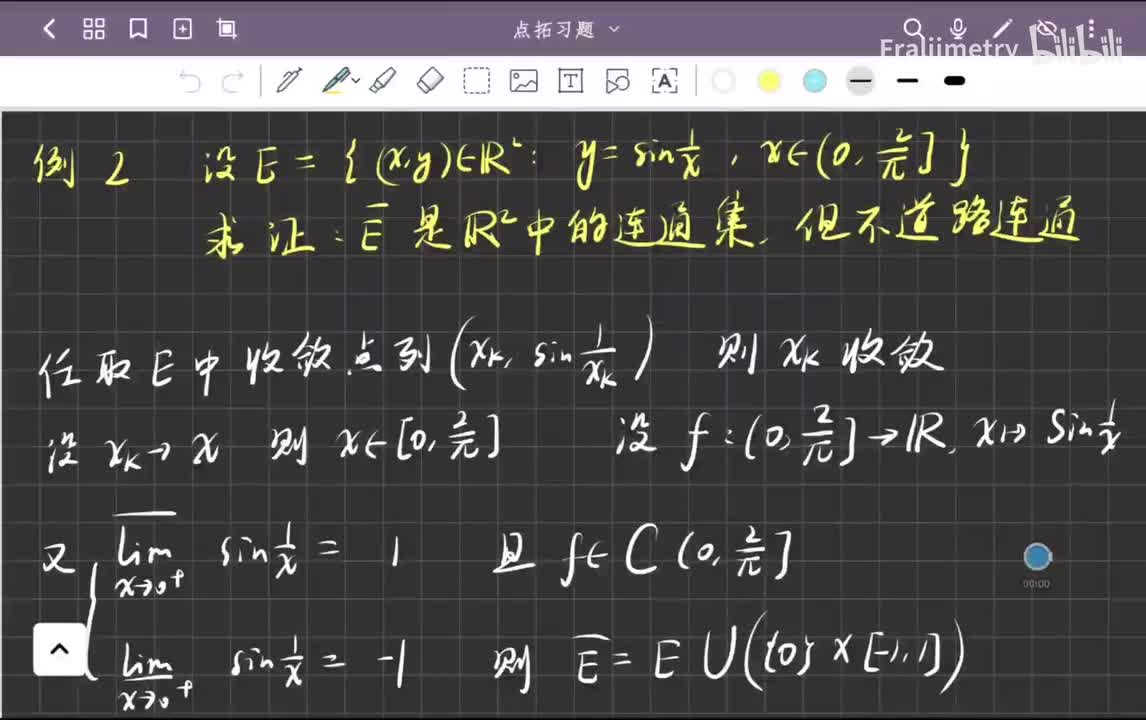 点拓习题
Fraliimetry bilibili
例 2 设 E = { (x,y)∈ℝ²: y = sin 1/x , x∈(0, 2/π] }
求证: E̅ 是 ℝ² 中的连通集, 但不道路连通
任取 E 中收敛点列 (xₖ, sin 1/xₖ) 则 xₖ 收敛
设 xₖ→x 则 x∈[0, 2/π] 设 f:(0, 2/π]→ℝ, x↦ Sin 1/x
又 { lim̅ x→0⁺ sin 1/x = 1 且 f∈C(0, 2/π]
00:00
lim̲ x→0⁺ sin 1/x = -1 则 E̅ = E ∪ ({0} × [-1,1])